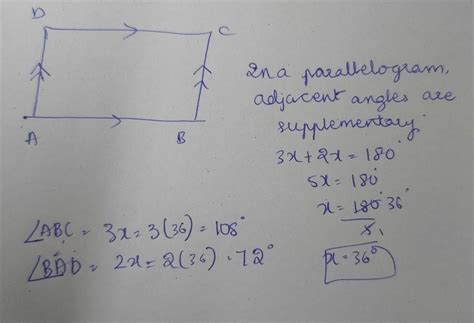 D
C
A
B
In a parallelogram,
adjacent angles are
supplementary.
3x + 2x = 180°
5x = 180°
x = 180° 36°
5 1
x = 36°
∠ABC = 3x = 3(36) = 108°
∠BAD = 2x = 2(36) = 72°